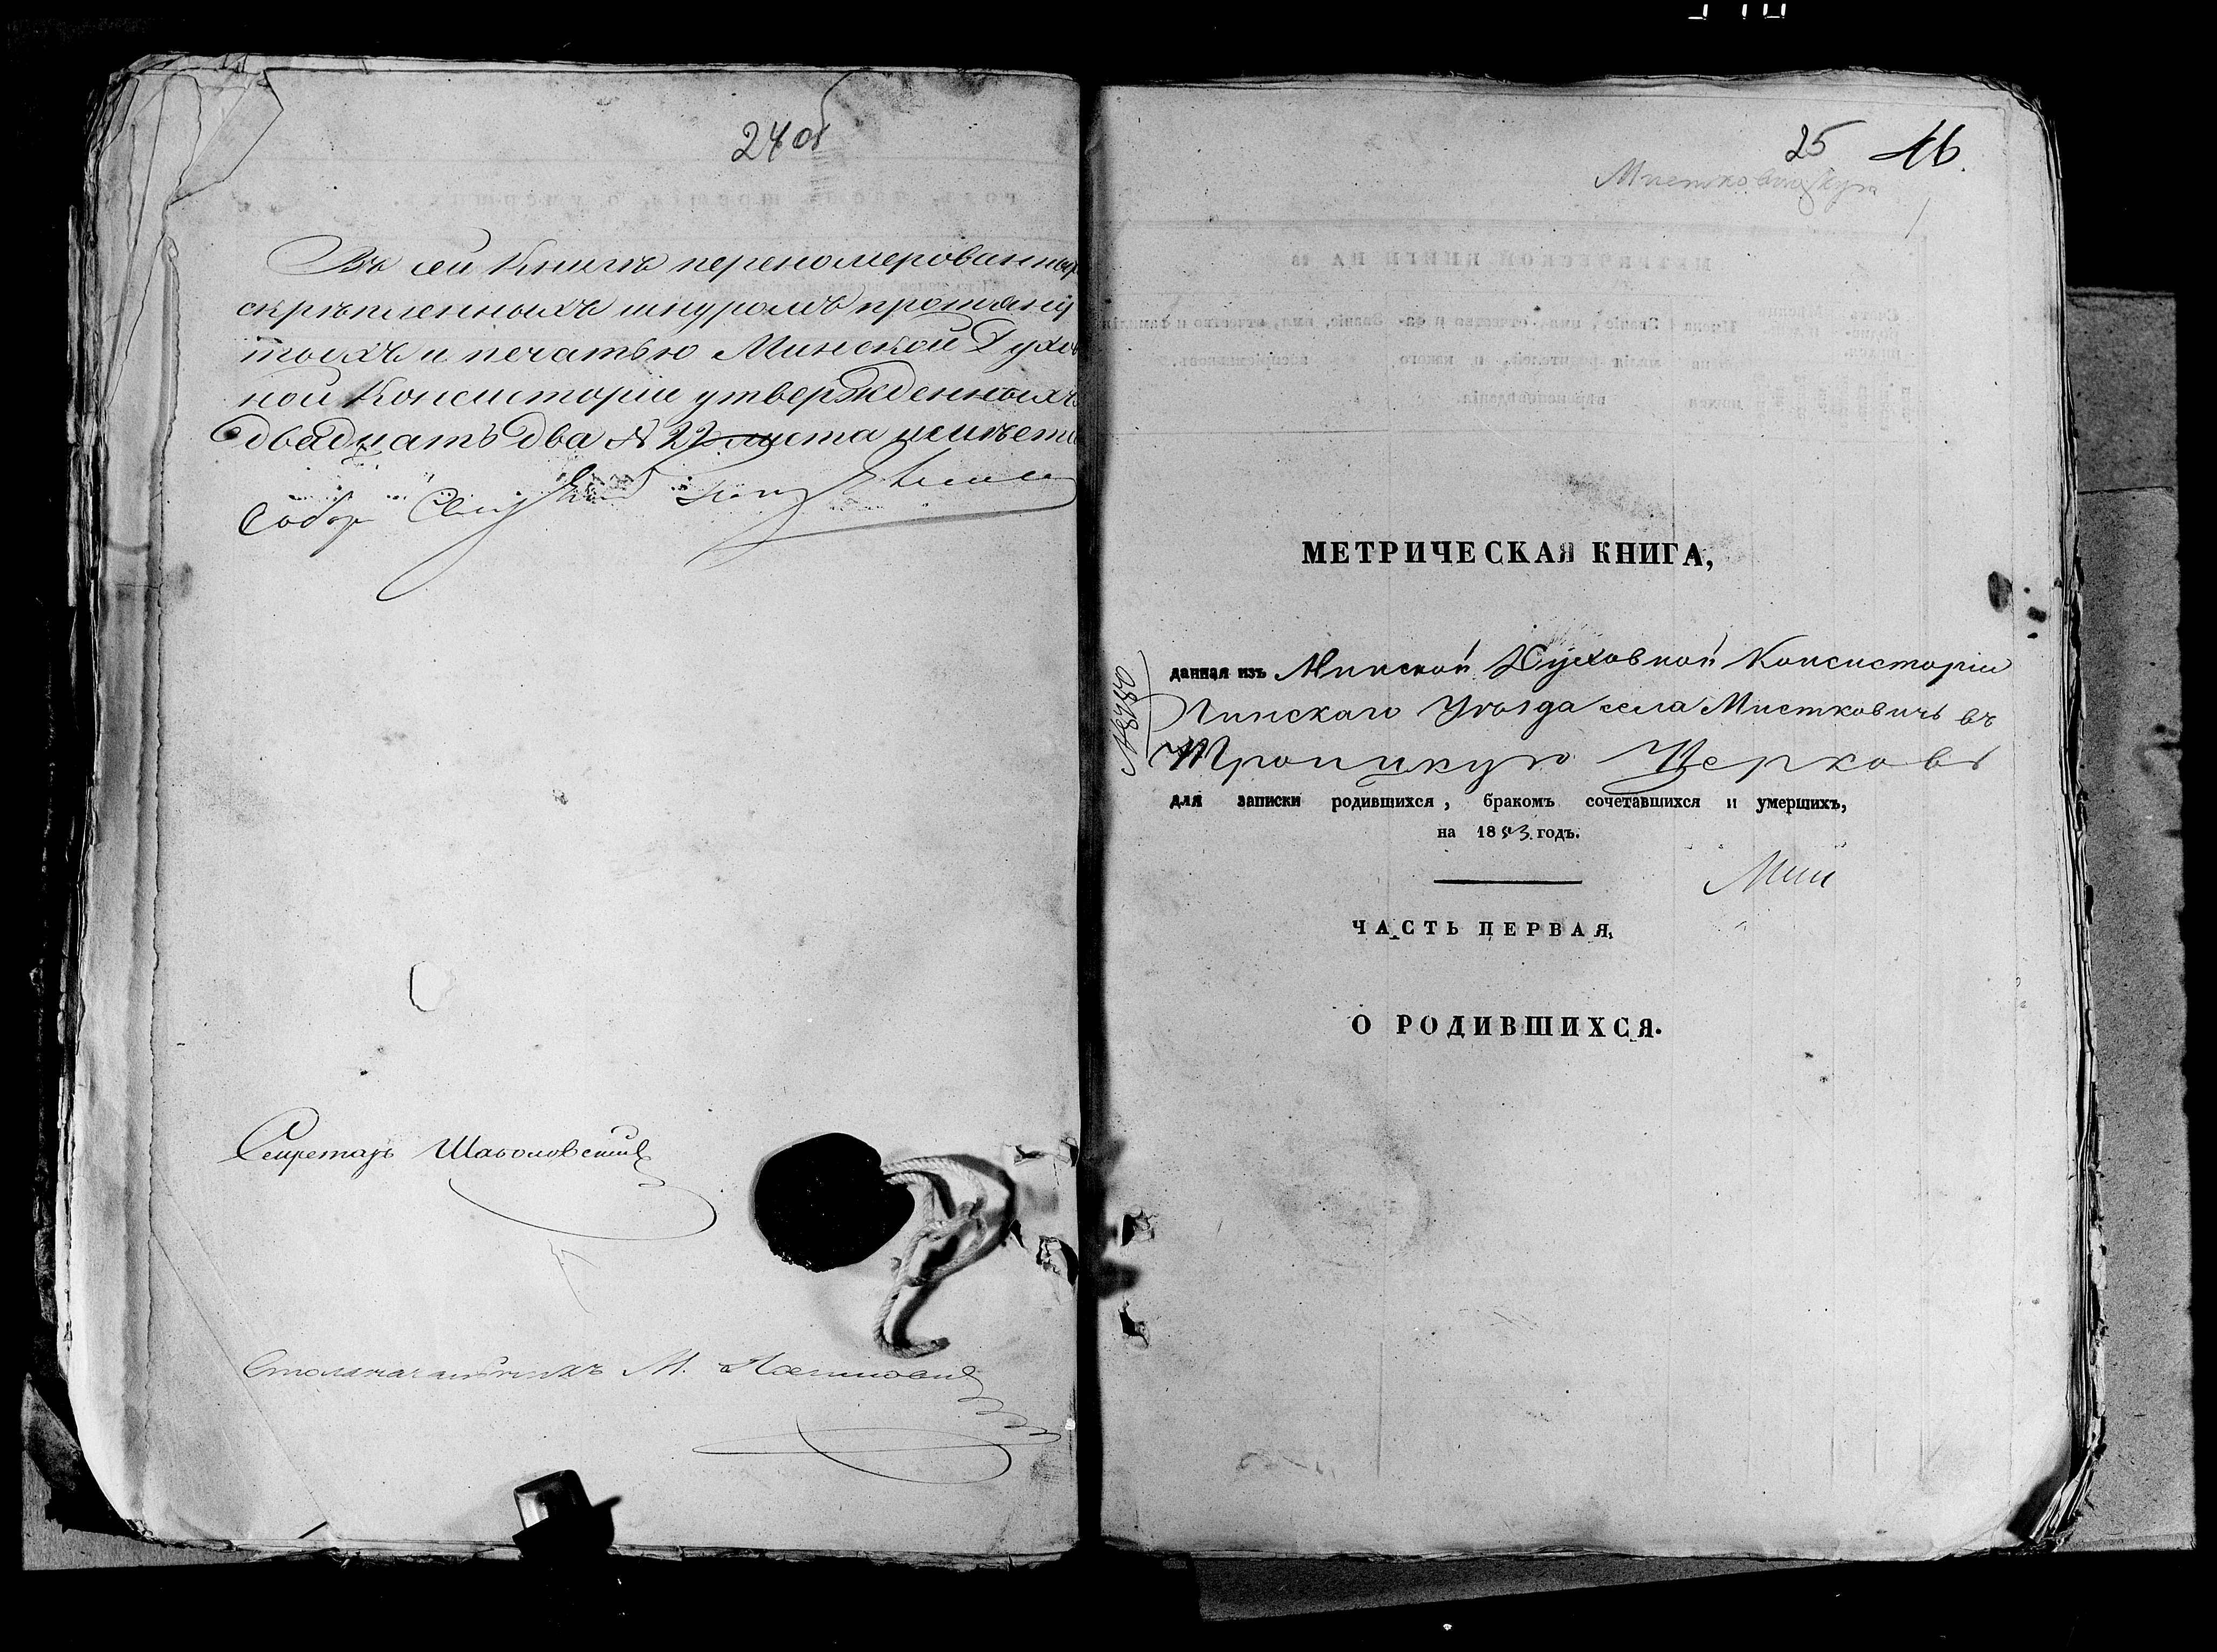 24об
Въ сей Книгѣ перекомерованныхъ
скрѣпленныхъ шнуромъ протяну
тыхъ и печатью Минской Духов
ной Консисторіи утвержденныхъ
двадцать два № 22 листа имѣетъ
Собор
Секретарь Шаболовскій
Столоначальникъ М.
25 46.
МЕТРИЧЕСКАЯ КНИГА,
данная изъ Минской Духовной Консисторіи
Пинскаго Уѣзда села Мистковичъ въ
Троицкую Церковь
для записки родившихся, бракомъ сочетавшихся и умершихъ,
на 1853 годъ.
ЧАСТЬ ПЕРВАЯ,
О РОДИВШИХСЯ.